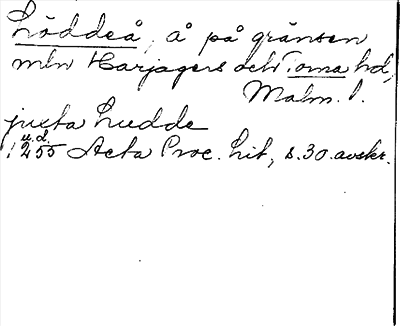 Löddeå, å på gränsen
mln Harjagers och Torna hd,
Malm. l.
juxta Ludde
u.d.
1255 Acta Proc. Lit, s. 30. avskr.